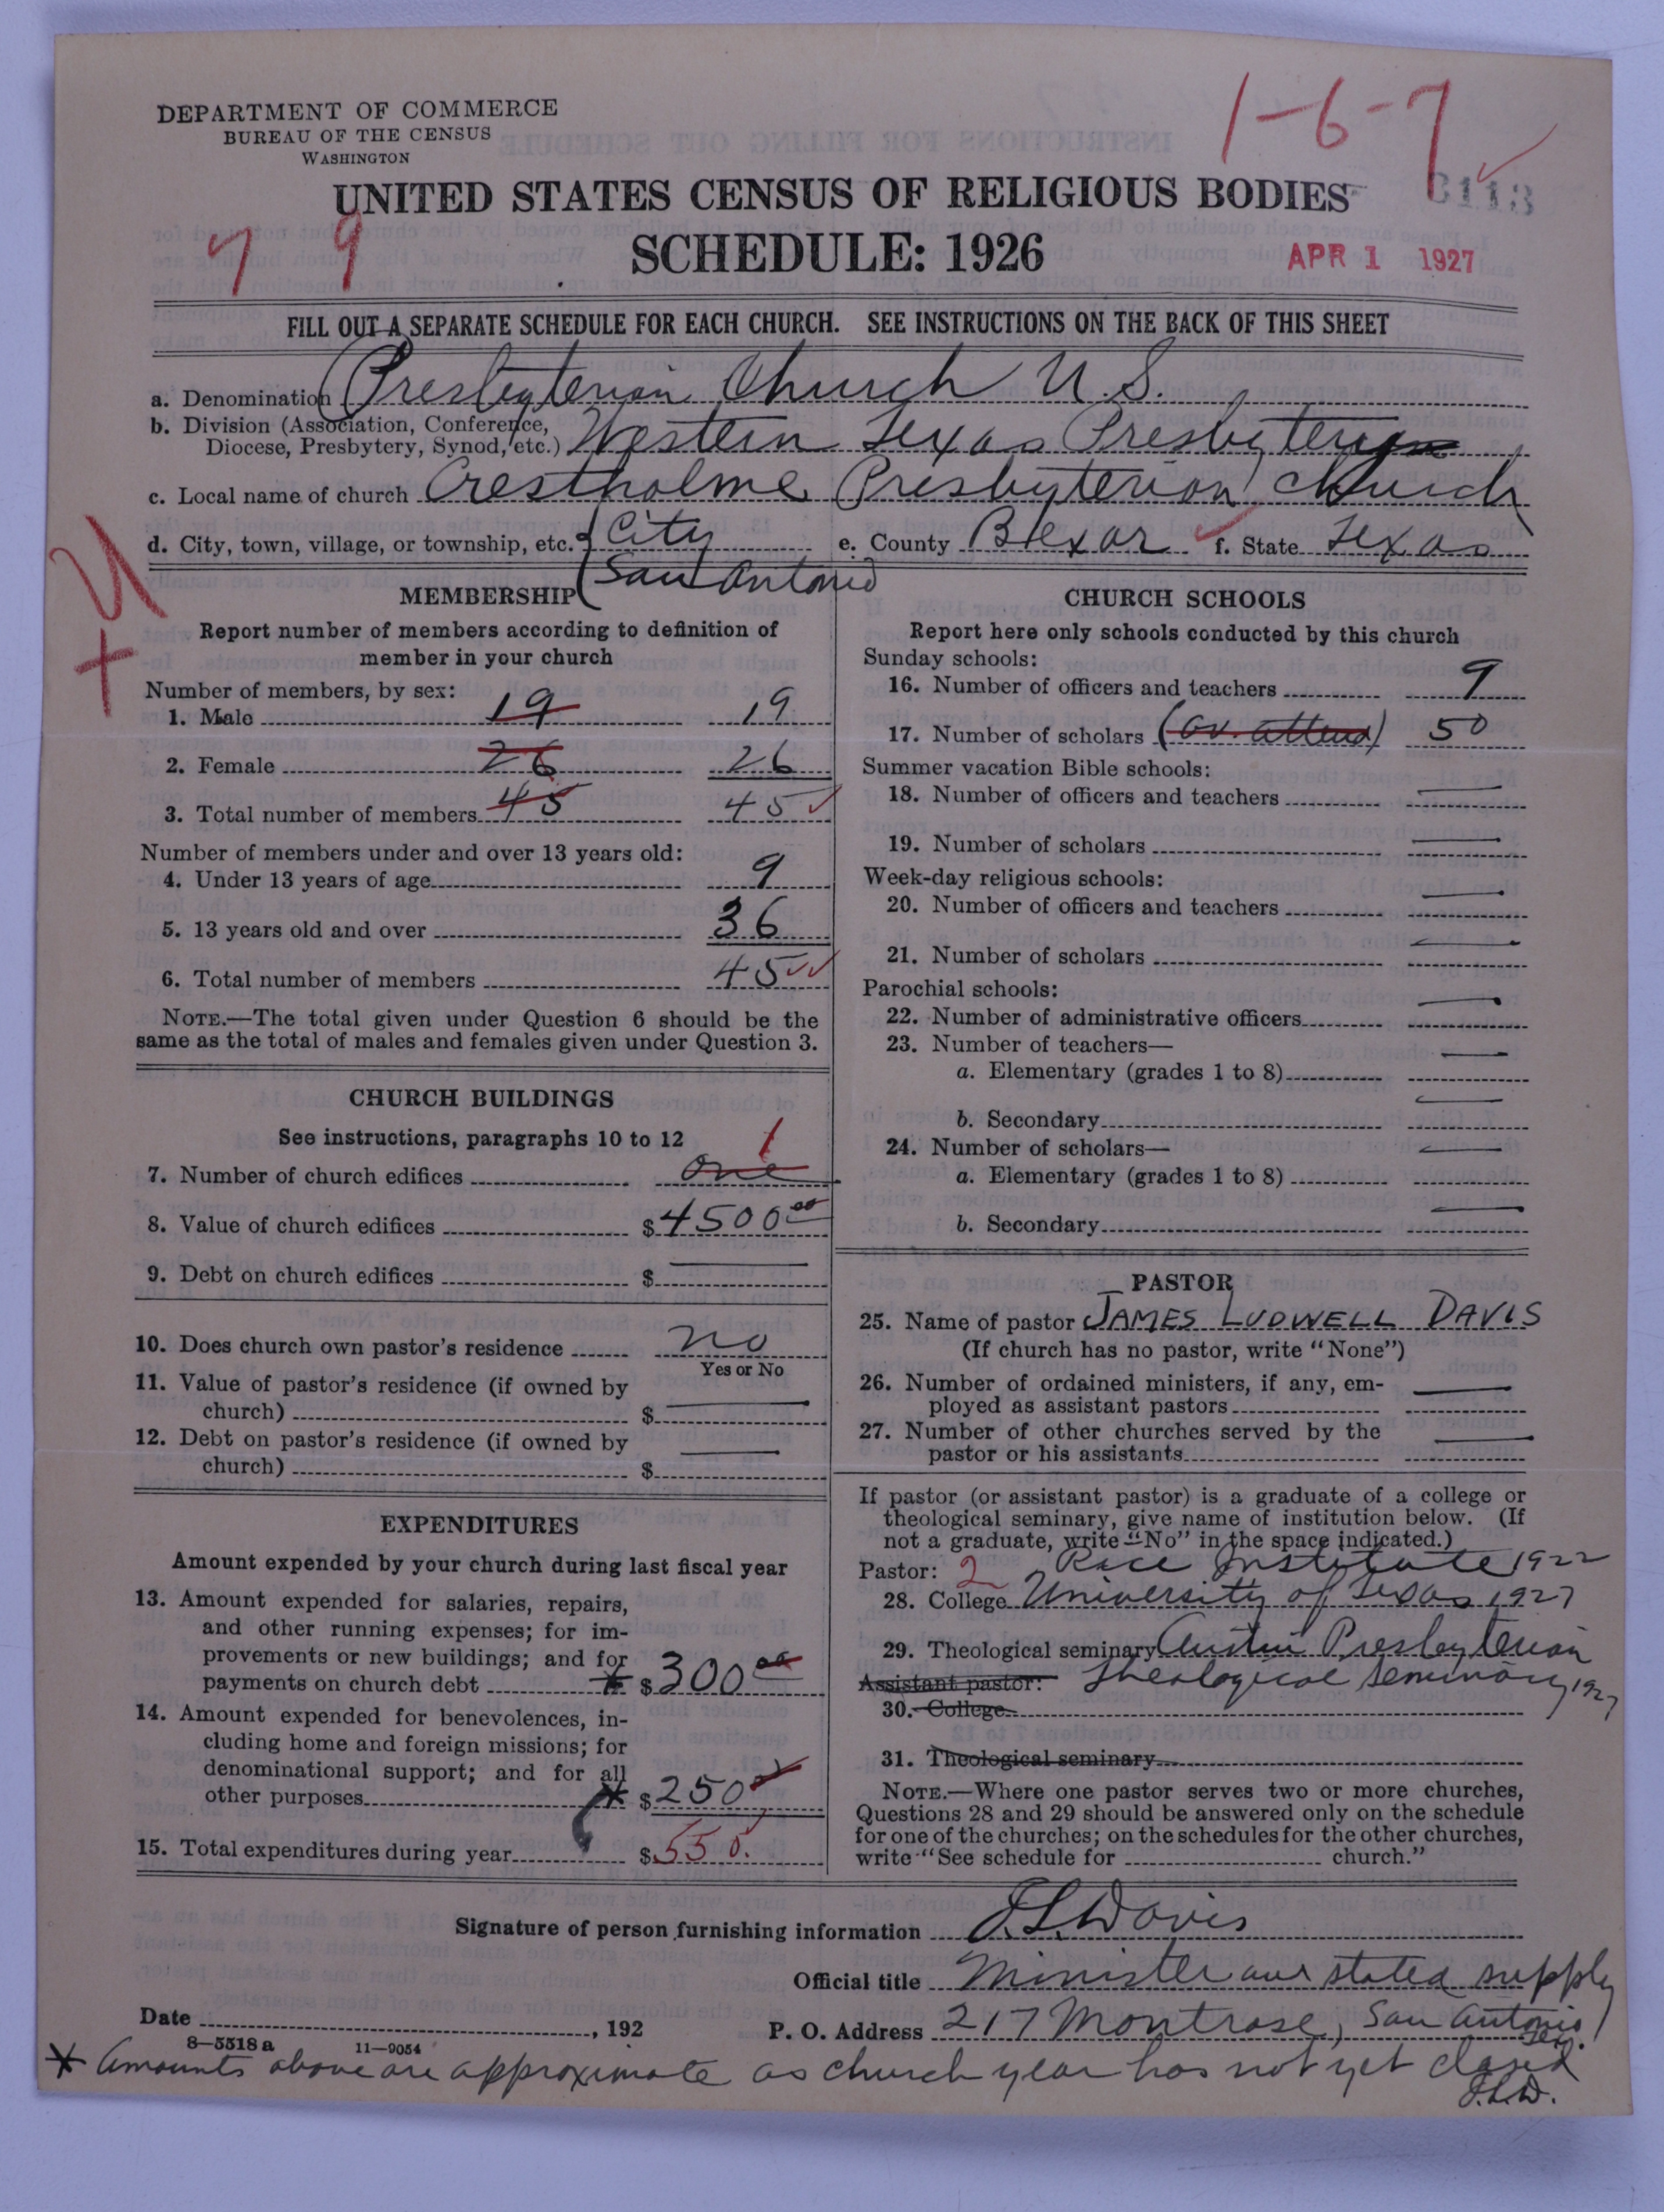 DEPARTMENT OF COMMERCE
BUREAU OF THE CENSUS
WASHINGTON
1-6-7
UNITED STATES CENSUS OF RELIGIOUS BODIES
3113
7 9
SCHEDULE: 1926
APR 1 1927
FILL OUT A SEPARATE SCHEDULE FOR EACH CHURCH. SEE INSTRUCTIONS ON THE BACK OF THIS SHEET
a. Denomination Presbyterian Church U.S.
b. Division (Association, Conference,
Diocese, Presbytery, Synod, etc.) Western Texas Presbytery
c. Local name of church Crestholme Presbyterian Church
d. City, town, village, or township, etc. City San Antonio e. County Bexar f. State Texas
U
+
MEMBERSHIP
Report number of members according to definition of
member in your church
Number of members, by sex:
1. Male 19 19
2. Female 26 26
3. Total number of members 45 45
Number of members under and over 13 years old:
4. Under 13 years of age 9
5. 13 years old and over 36
6. Total number of members 45
NOTE.—The total given under Question 6 should be the
same as the total of males and females given under Question 3.
CHURCH BUILDINGS
See instructions, paragraphs 10 to 12
7. Number of church edifices one 1
8. Value of church edifices $4500.00
9. Debt on church edifices $
10. Does church own pastor's residence no
Yes or No
11. Value of pastor's residence (if owned by
church) $
12. Debt on pastor's residence (if owned by
church) $
EXPENDITURES
Amount expended by your church during last fiscal year
13. Amount expended for salaries, repairs,
and other running expenses; for im-
provements or new buildings; and for
payments on church debt * $300.00
14. Amount expended for benevolences, in-
cluding home and foreign missions; for
denominational support; and for all
other purposes * $250
15. Total expenditures during year $550.
CHURCH SCHOOLS
Report here only schools conducted by this church
Sunday schools:
16. Number of officers and teachers 9
17. Number of scholars (av. attend) 50
Summer vacation Bible schools:
18. Number of officers and teachers
19. Number of scholars
Week-day religious schools:
20. Number of officers and teachers
21. Number of scholars
Parochial schools:
22. Number of administrative officers
23. Number of teachers—
a. Elementary (grades 1 to 8)
b. Secondary
24. Number of scholars—
a. Elementary (grades 1 to 8)
b. Secondary
PASTOR
25. Name of pastor JAMES LUDWELL DAVIS
(If church has no pastor, write "None")
26. Number of ordained ministers, if any, em-
ployed as assistant pastors
27. Number of other churches served by the
pastor or his assistants
If pastor (or assistant pastor) is a graduate of a college or
theological seminary, give name of institution below. (If
not a graduate, write "No" in the space indicated.)
Pastor: 2 Rice Institute 1922
28. College University of Texas 1927
29. Theological seminary Austin Presbyterian
Assistant pastor: Theological Seminary, 1927
30. College
31. Theological seminary
NOTE.—Where one pastor serves two or more churches,
Questions 28 and 29 should be answered only on the schedule
for one of the churches; on the schedules for the other churches,
write "See schedule for church."
Signature of person furnishing information J.L. Davis
Official title Minister and stated supply
Date , 192
P. O. Address 217 Montrose, San Antonio, Tex.
8-5518 a 11-9054
* Amounts above are approximate as church year has not yet closed
J.L.D.